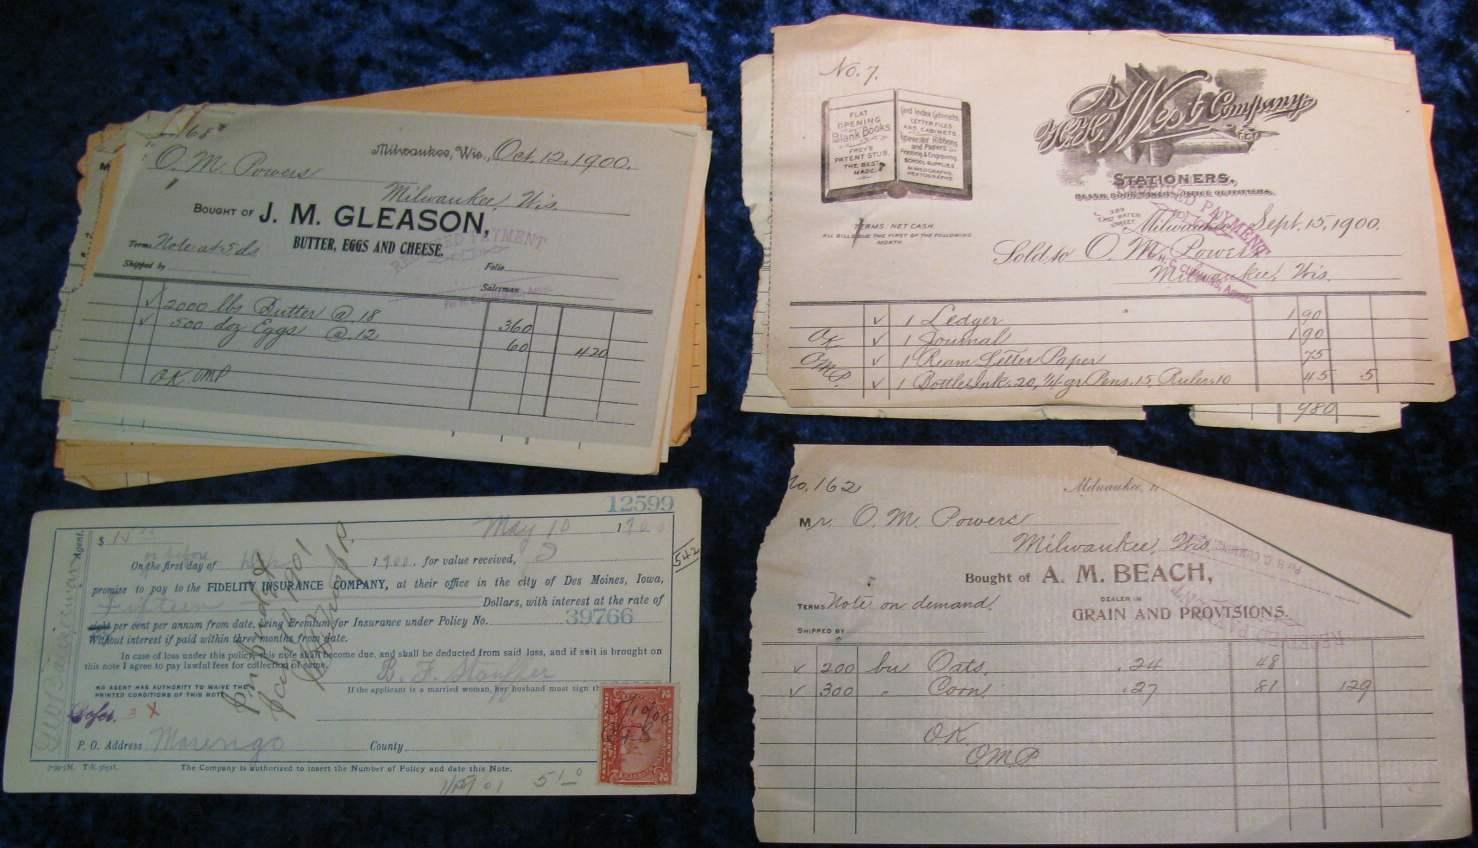 O. M. Powers
Milwaukee, Wis., Oct. 12, 1900.
Milwaukee, Wis.
BOUGHT OF J. M. GLEASON,
BUTTER, EGGS AND CHEESE.
Terms Note at 5 ds
Shipped by
Folio
Salesman
✓ 2000 lbs Butter @ .18 360
✓ 500 doz Eggs @ .12 60 420
OK OMP
No. 7.
FLAT
OPENING
Blank Books
FREY'S
PATENT STUB,
THE BEST
MADE.
Card Index Cabinets
LETTER FILES
AND CABINETS
Typewriter Ribbons
and Papers
Printing & Engraving
SCHOOL SUPPLIES
MIMEOGRAPHS
HEKTOGRAPHS
H. H. West Company
STATIONERS,
BLANK BOOK MAKERS, OFFICE OUTFITTERS,
EAST WATER
STREET
TERMS: NET CASH
ALL BILLS DUE THE FIRST OF THE FOLLOWING
MONTH
Milwaukee, Sept. 15, 1900.
Sold to O. M. Powers
Milwaukee, Wis.
✓ 1 Ledger 1 90
OK ✓ 1 Journal 1 90
OMP. ✓ 1 Ream Letter Paper 75
✓ 1 Bottle Ink .20, ¼ gr Pens .15 Ruler .10 45 5
980
12599
May 10 1900
$15
On the first day of 1900, for value received,
promise to pay to the FIDELITY INSURANCE COMPANY, at their office in the city of Des Moines, Iowa,
Fifteen Dollars, with interest at the rate of
eight per cent per annum from date, being Premium for Insurance under Policy No. 39766
Without interest if paid within three months from date.
In case of loss under this policy, this note shall become due, and shall be deducted from said loss, and if suit is brought on
this note I agree to pay lawful fees for collection of same.
B. F. Stauffer
NO AGENT HAS AUTHORITY TO WAIVE THE
PRINTED CONDITIONS OF THIS NOTE
If the applicant is a married woman, her husband must sign
P. O. Address Marengo County
The Company is authorized to insert the Number of Policy and date this Note.
Agent.
542
No. 162
Milwaukee,
Mr. O. M. Powers
Milwaukee, Wis.
Bought of A. M. BEACH,
DEALER IN
GRAIN AND PROVISIONS.
TERMS Note on demand.
SHIPPED BY
✓ 200 bu Oats. .24 48
✓ 300 " Corn .27 81 129
OK
OMP